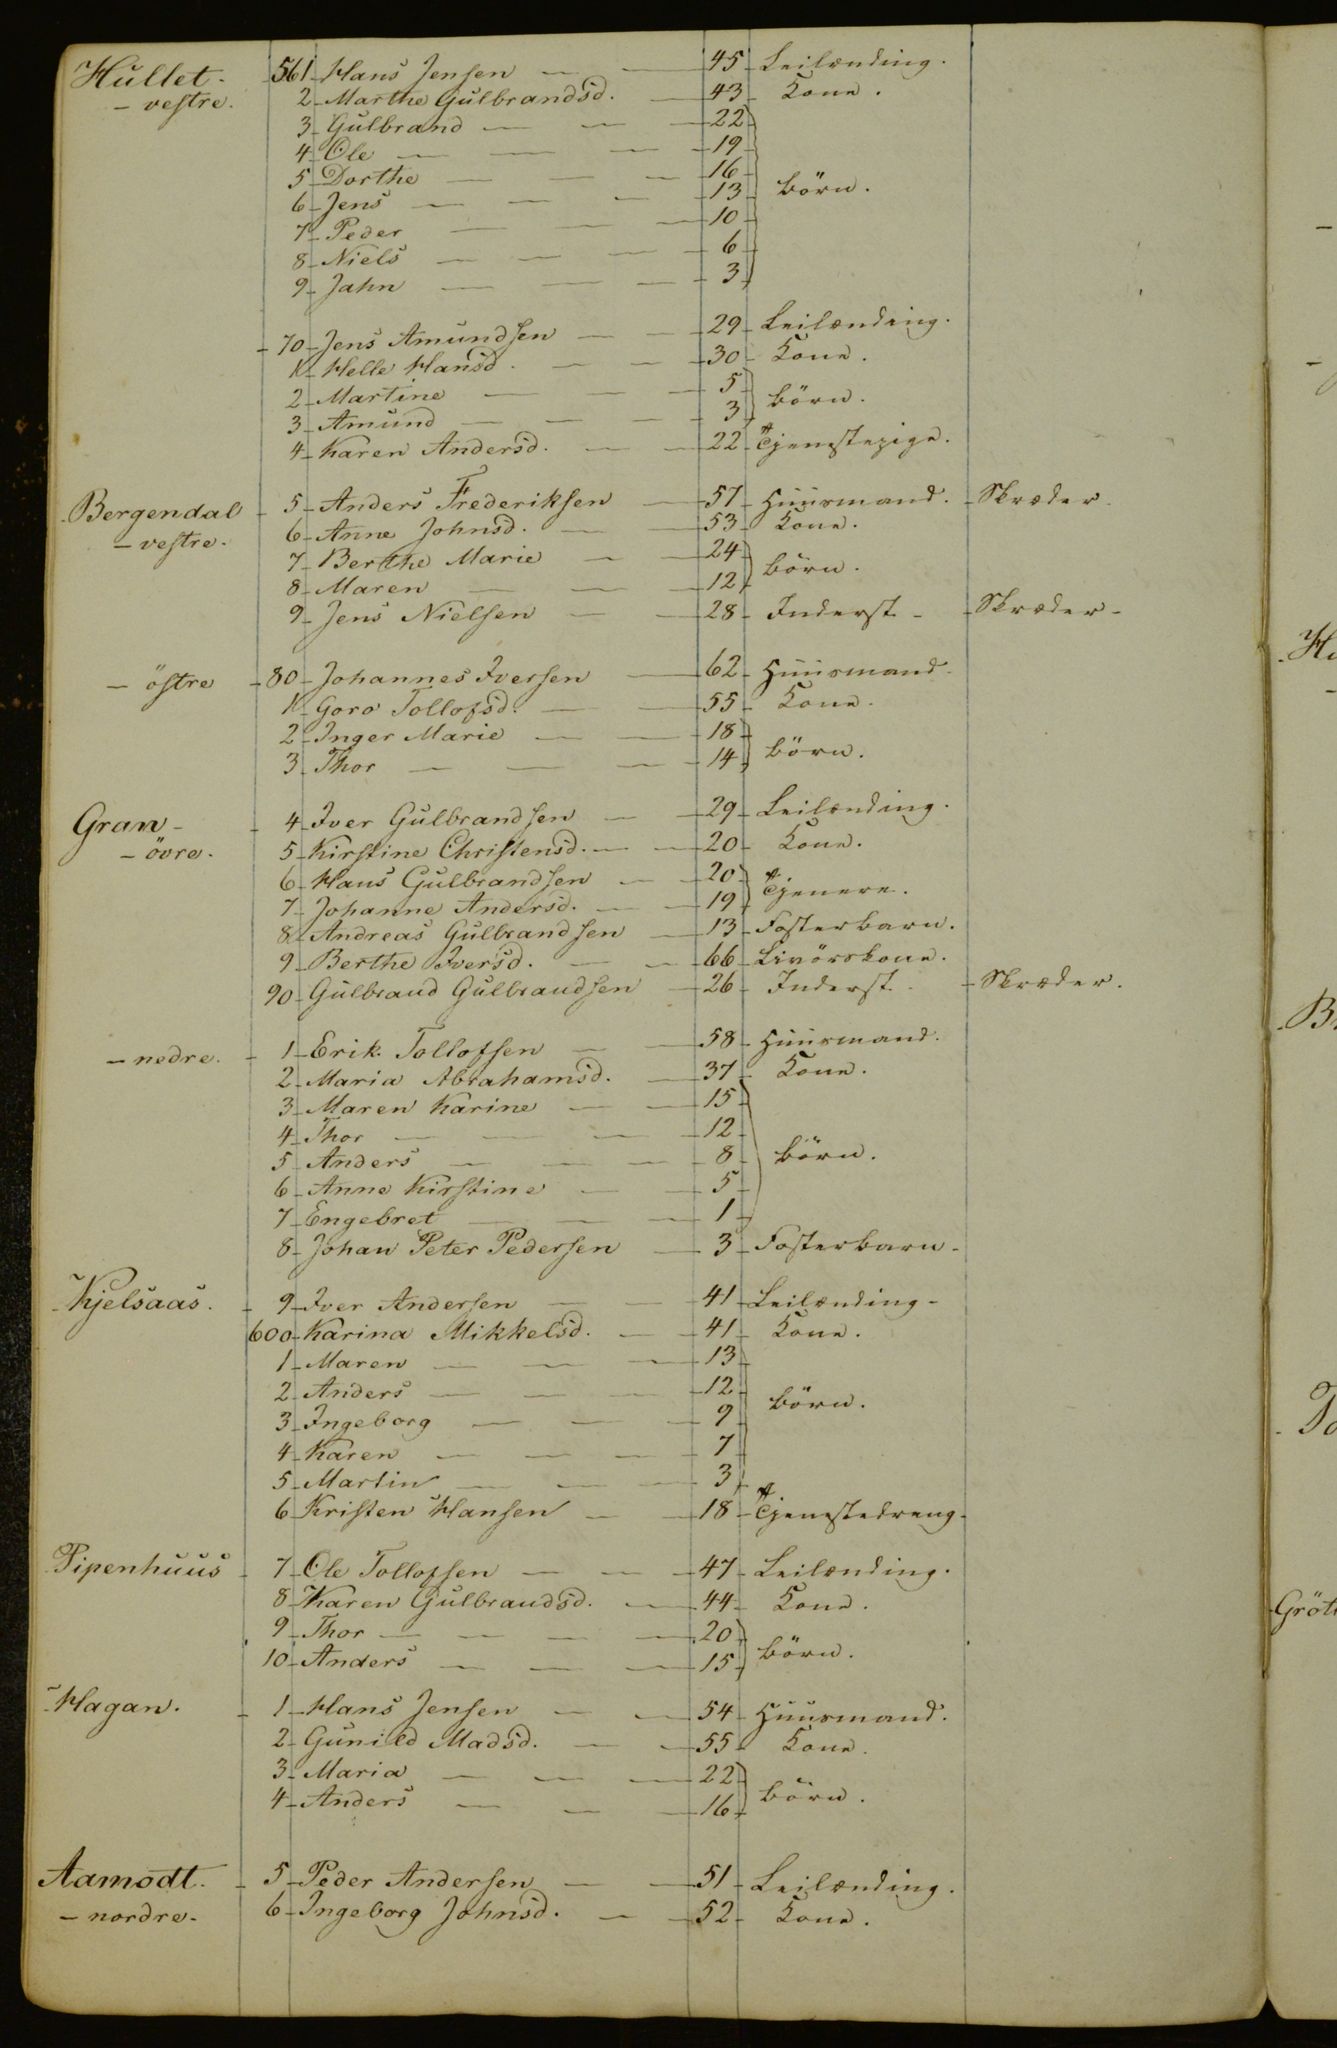 Hullet. 561 Hans Jensen 45 Leilænding.
- vestre. 2 Marthe Gulbrandsd. 43 Kone.
3 Gulbrand 22
4 Ole 19
5 Dorthe 16
6 Jens 13 börn.
7 Peder 10
8 Niels 6
9 Jahn 3
70 Jens Amundsen 29 Leilænding.
1 Helle Hansd. 30 Kone.
2 Martine 5 börn.
3 Amund 3
4 Karen Andersd. 22 Tjenestepige.
Bergendal 5 Anders Frederiksen 57 Huusmand. Skræder.
- vestre. 6 Anne Johnsd. 53 Kone.
7 Berthe Marie 24 börn.
8 Maren 12
9 Jens Nielsen 28 Inderst Skræder
- östre 80 Johannes Iversen 62 Huusmand.
1 Goro Tollofsd. 55 Kone.
2 Inger Marie 18 börn.
3 Thor 14
Gran 4 Iver Gulbrandsen 29 Leilænding.
- övre. 5 Kirstine Christensd. 20 Kone.
6 Hans Gulbrandsen 20 Tjenere.
7 Johanne Andersd. 19
8 Andreas Gulbrandsen 13 Fosterbarn.
9 Berthe Iversd. 66 Livörskone.
90 Gulbrand Gulbrandsen 26 Inderst. Skræder.
- nedre. 1 Erik Tollofsen 58 Huusmand.
2 Maria Abrahamsd. 37 Kone.
3 Maren Karine 15
4 Thor 12
5 Anders 8 börn.
6 Anne Kirstine 5
7 Engebret 1
8 Johan Peter Pedersen 3 Fosterbarn
Kjelsaas. 9 Iver Andersen 41 Leilænding
600 Karina Mikkelsd. 41 Kone.
1 Maren 13
2 Anders 12
3 Ingeborg 9 börn.
4 Karen 7
5 Martin 3
6 Kristen Hansen 18 Tjenestedreng
Pipenhuus 7 Ole Tollofsen 47 Leilænding.
8 Karen Gulbrandsd. 44 Kone.
9 Thor 20 börn.
10 Anders 15
Hagan. 1 Hans Jensen 54 Huusmand.
2 Gunild Madsd. 55 Kone.
3 Maria 22 börn.
4 Anders 16
Aamodt. 5 Peder Andersen 51 Leilænding.
- nordre 6 Ingeborg Johnsd. 52 Kone.